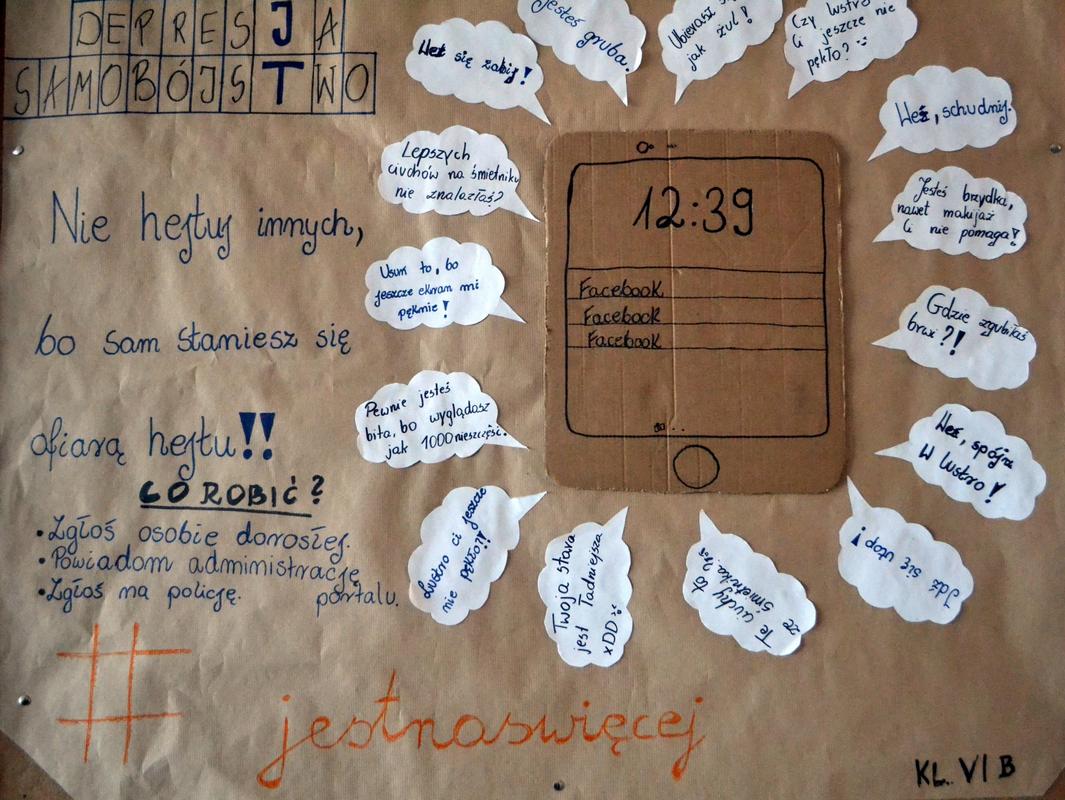 DEPRESJA
SAMOBÓJSTWO
Nie hejtuj innych,
bo sam staniesz się
ofiarą hejtu!!
CO ROBIĆ?
•Zgłoś osobie dorosłej.
•Powiadom administrację
portalu.
•Zgłoś na policję.
#jestnaswięcej
Weź się zabij!
jesteś gruba.
Ubierasz się
jak żul!
Czy lustro
ci jeszcze nie
pękło?
Weź, schudnij.
Lepszych
ciuchów na śmietniku
nie znalazłaś?
Jesteś brzydka,
nawet makijaż
Ci nie pomaga!
Usuń to, bo
jeszcze ekran mi
pęknie!
Gdzie zgubiłaś
brwi?!
Pewnie jesteś
bita, bo wyglądasz
jak 1000 nieszczęść.
Weź, spójrz
w lustro!
Lustro ci jeszcze
nie pękło?!!
Twoja stara
jest ładniejsza
xDD
Te ciuchy to
ze śmietnika
Idź się utop!
12:39
Facebook
Facebook
Facebook
KL. VI B